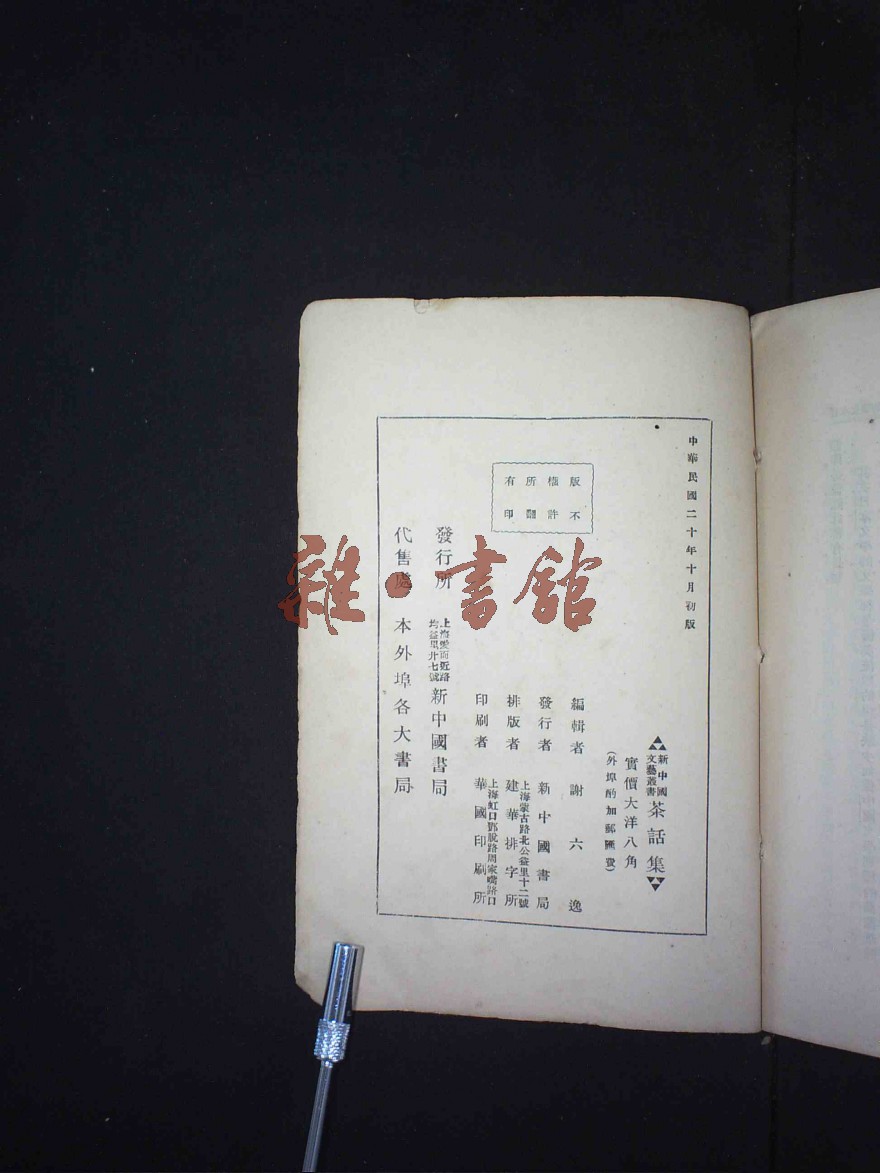 中華民國二十年十月初版
新中國文藝叢書
茶話集
實價大洋八角
(外埠酌加郵匯費)
版權所有
不許翻印
編輯者 謝六逸
發行者 新中國書局
排版者 上海蒙古路北公益里十二號 建華排字所
印刷者 上海虹口鄧脫路周家嘴路口 華國印刷所
發行所 上海愛而近路均益里廿七號 新中國書局
代售處 本外埠各大書局
雜·書館